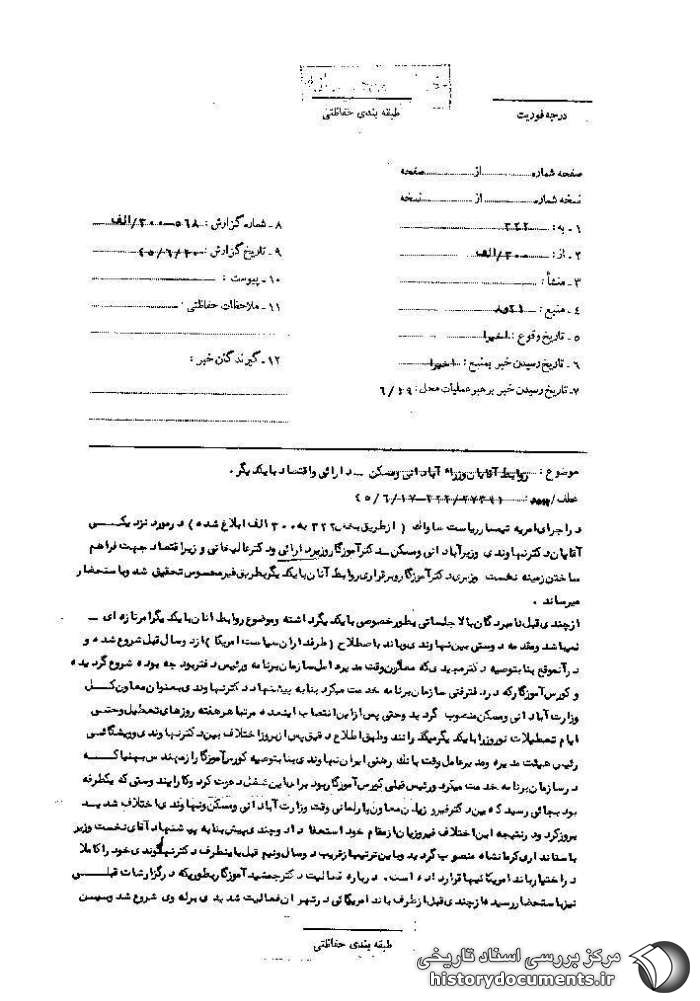 طبقه بندی حفاظتی
درجه فوریت
صفحه شماره از صفحه
نسخه شماره از نسخه
۱ـ به : ۳۲۲
۲ـ از : ۳۰۰/الف
۳ـ منشأ :
۴ـ منبع :
۵ـ تاریخ وقوع : اخیرا
۶ـ تاریخ رسیدن خبر بمنبع : اخیرا
۷ـ تاریخ رسیدن خبر برهبر عملیات محل : ۶/۱۹
۸ـ شماره گزارش : ۵۶۸ـ۳۰۰/الف
۹ـ تاریخ گزارش : ۴۵/۶/۲۰
۱۰ـ پیوست :
۱۱ـ ملاحظات حفاظتی :
۱۲ـ گیرندگان خبر :
موضوع : روابط آقایان وزراء آبادانی ومسکن ـ دارائی واقتصاد با یکدیگر .
عطف/ : ۳۲۲/۲۷۳۹۱ـ۴۵/۶/۱۷
در اجرای امریه تیمسار ریاست ساواک ( از طریق بخش ۳۲۲ به ۳۰۰ الف ابلاغ شده ) در مورد نزدیکی
آقایان دکتر نهاوندی وزیر آبادانی ومسکن ـ دکتر آموزگار وزیر دارائی ودکتر عالیخانی وزیر اقتصاد جهت فراهم
ساختن زمینه نخست وزیری دکتر آموزگار وبرقراری روابط آنان با یکدیگر بطریق غیر محسوس تحقیق شد وباستحضار
میرساند .
از چندی قبل نامبردگان بالا جلساتی بطور خصوصی با یکدیگر داشته وموضوع روابط آنان با یکدیگر امر تازه ای ـ
نمیباشد ومقدمه دوستی بین نهاوندی وباند باصطلاح ( طرفداران سیاست امریکا ) از دوسال قبل شروع شده و
در آنموقع بنا بتوصیه دکتر مجیدی که معاون وقت مدیر عامل سازمان برنامه ورئیس دفتر بودجه بوده شروع گردیده
وکورس آموزگار که در دفتر فنی سازمان برنامه خدمت میکرد بنا به پیشنهاد دکتر نهاوندی بعنوان معاون کل
وزارت آبادانی ومسکن منصوب گردید وحتی پس از این انتصاب اینعده مرتبا هر هفته روزهای تعطیل وحتی
ایام تعطیلات نوروز را با یکدیگر میگذرانند وطبق اطلاع دقیق پس از بروز اختلاف بین دکتر نهاوندی و
رئیس هیئت مدیره ومدیر عامل وقت بانک رهنی ایران نهاوندی بنا بتوصیه کورس آموزگار از مهندس که
در سازمان برنامه خدمت میکرد ورئیس قبلی کورس آموزگار بود برای این شغل دعوت کرد وکار ایندوستی که یکطرفه
بود بجائی رسید که بین دکتر فیروزیان معاون پارلمانی وقت وزارت آبادانی ومسکن ونهاوندی اختلاف شدید
بروز کرد ودر نتیجه این اختلاف فیروزیان از مقام خود استعفا داد وچندی پیش بنا به پیشنهاد آقای نخست وزیر
باستانداری کرمانشاه منصوب گردید وباین ترتیب از قریب دوسال ونیم قبل باینطرف دکتر نهاوندی خود را کاملا
در اختیار باند امریکائیها قرار داده است . درباره فعالیت دکتر جمشید آموزگار بطوریکه در گزارشات قبلی
نیز باستحضار رسیده از چندی قبل از طرف باند امریکائی در تهران فعالیت شدیدی برله وی شروع شد وسپس
طبقه بندی حفاظتی
مرکز بررسی اسناد تاریخی
historydocuments.ir